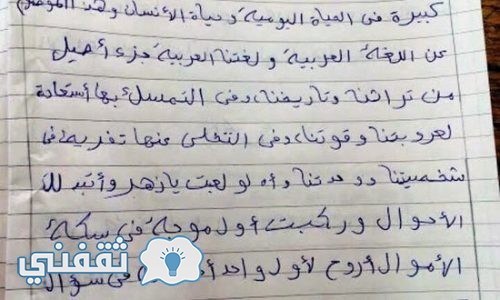 كبيرة فى الحياة اليومية وحياة الأنسان وهذا الموضوع
عن اللغة العربية ولغتنا العربية جزء أصيل
من تراثنا وتاريخنا، وفى التمسك بها أستعادة
لعروبتنا وقوتنا، وفى التخلى عنها تفريط فى
شخصيتنا ووحدتنا وأه لو لعبت يازهر وأتبدلت
الأحوال وركبت أول موجة فى سكة
الأموال أروح لأول واحد فى سؤال
ثقفني